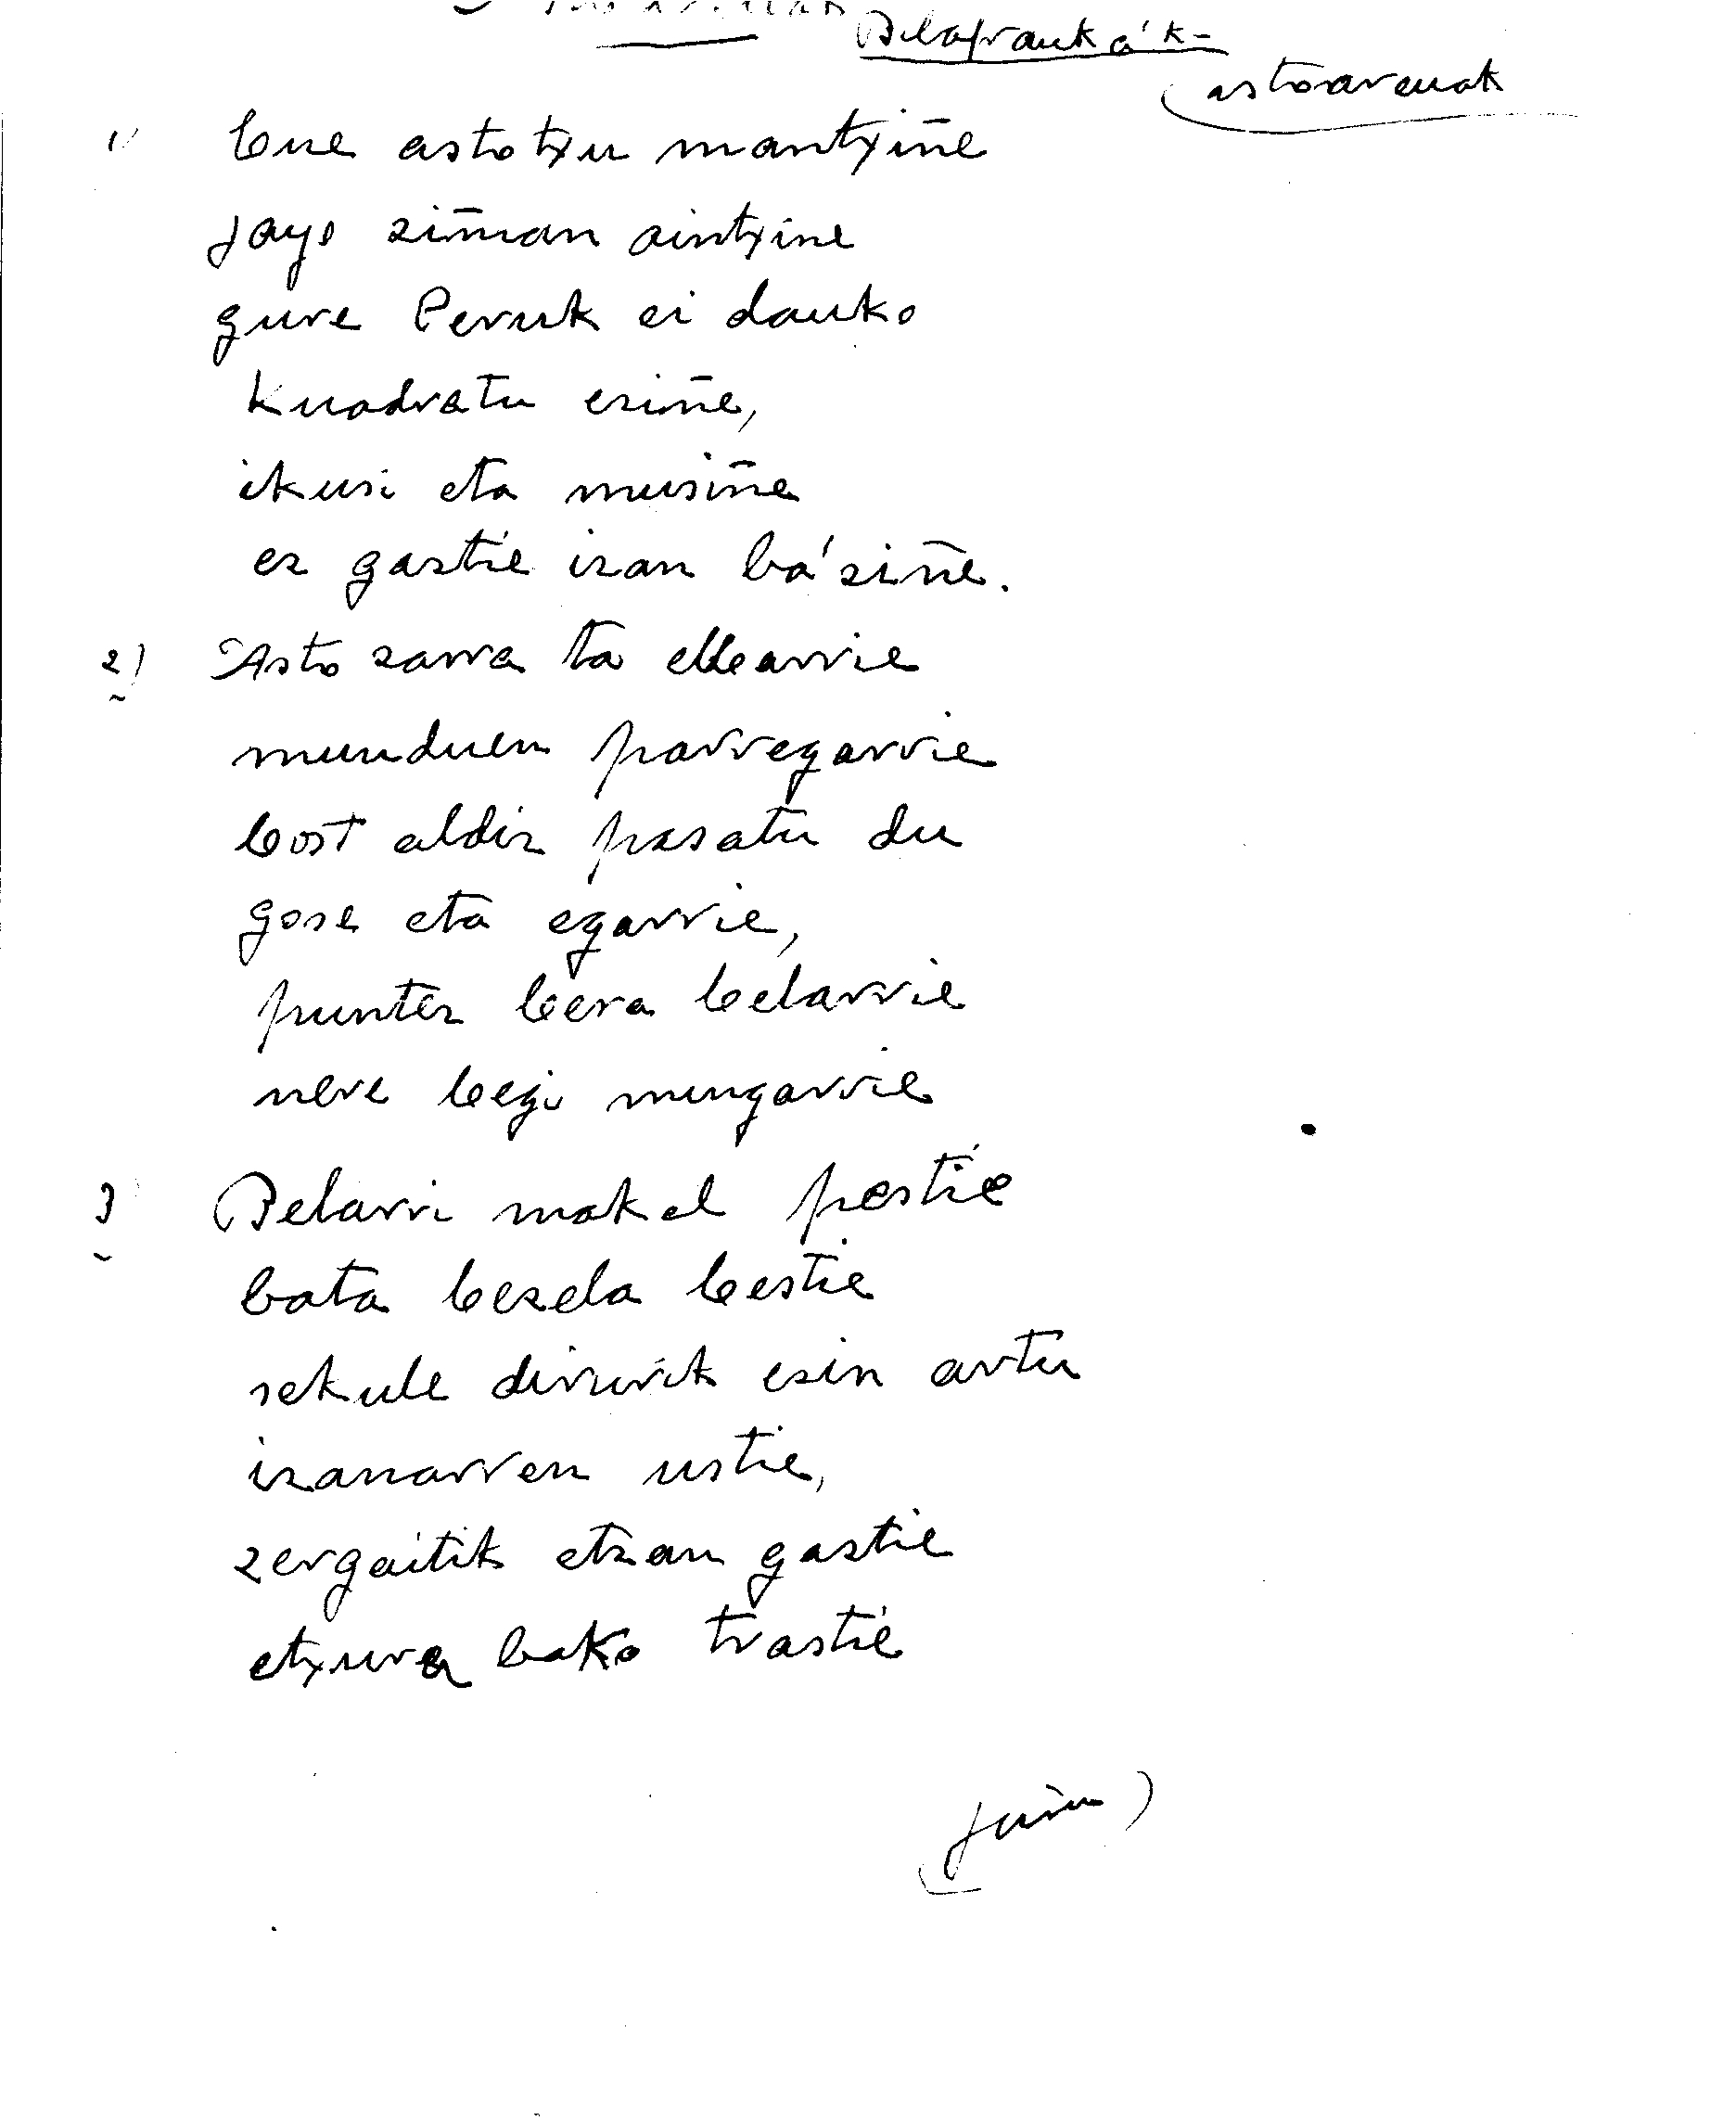 Bilafranká'k-
astoarenak
1) Bere astotxu mantxiñe
jayo ziñan aintxine
gure Peruk ei dauko
kuadratu eziñe,
ikusi eta musiñe
ez gaztie izan bá'ziñe.
2) Asto zarra ta elbarrie
munduen parregarrie
bost aldiz pasatu du
gose eta egarrie,
puntez bera belarrie
nere begi mingarrie
3 Belarri makal pestie
bata bezela bestie
sekule dirurik ezin artu
izanarren ustie,
zergaitik etzan gaztie
etxura bako trastie